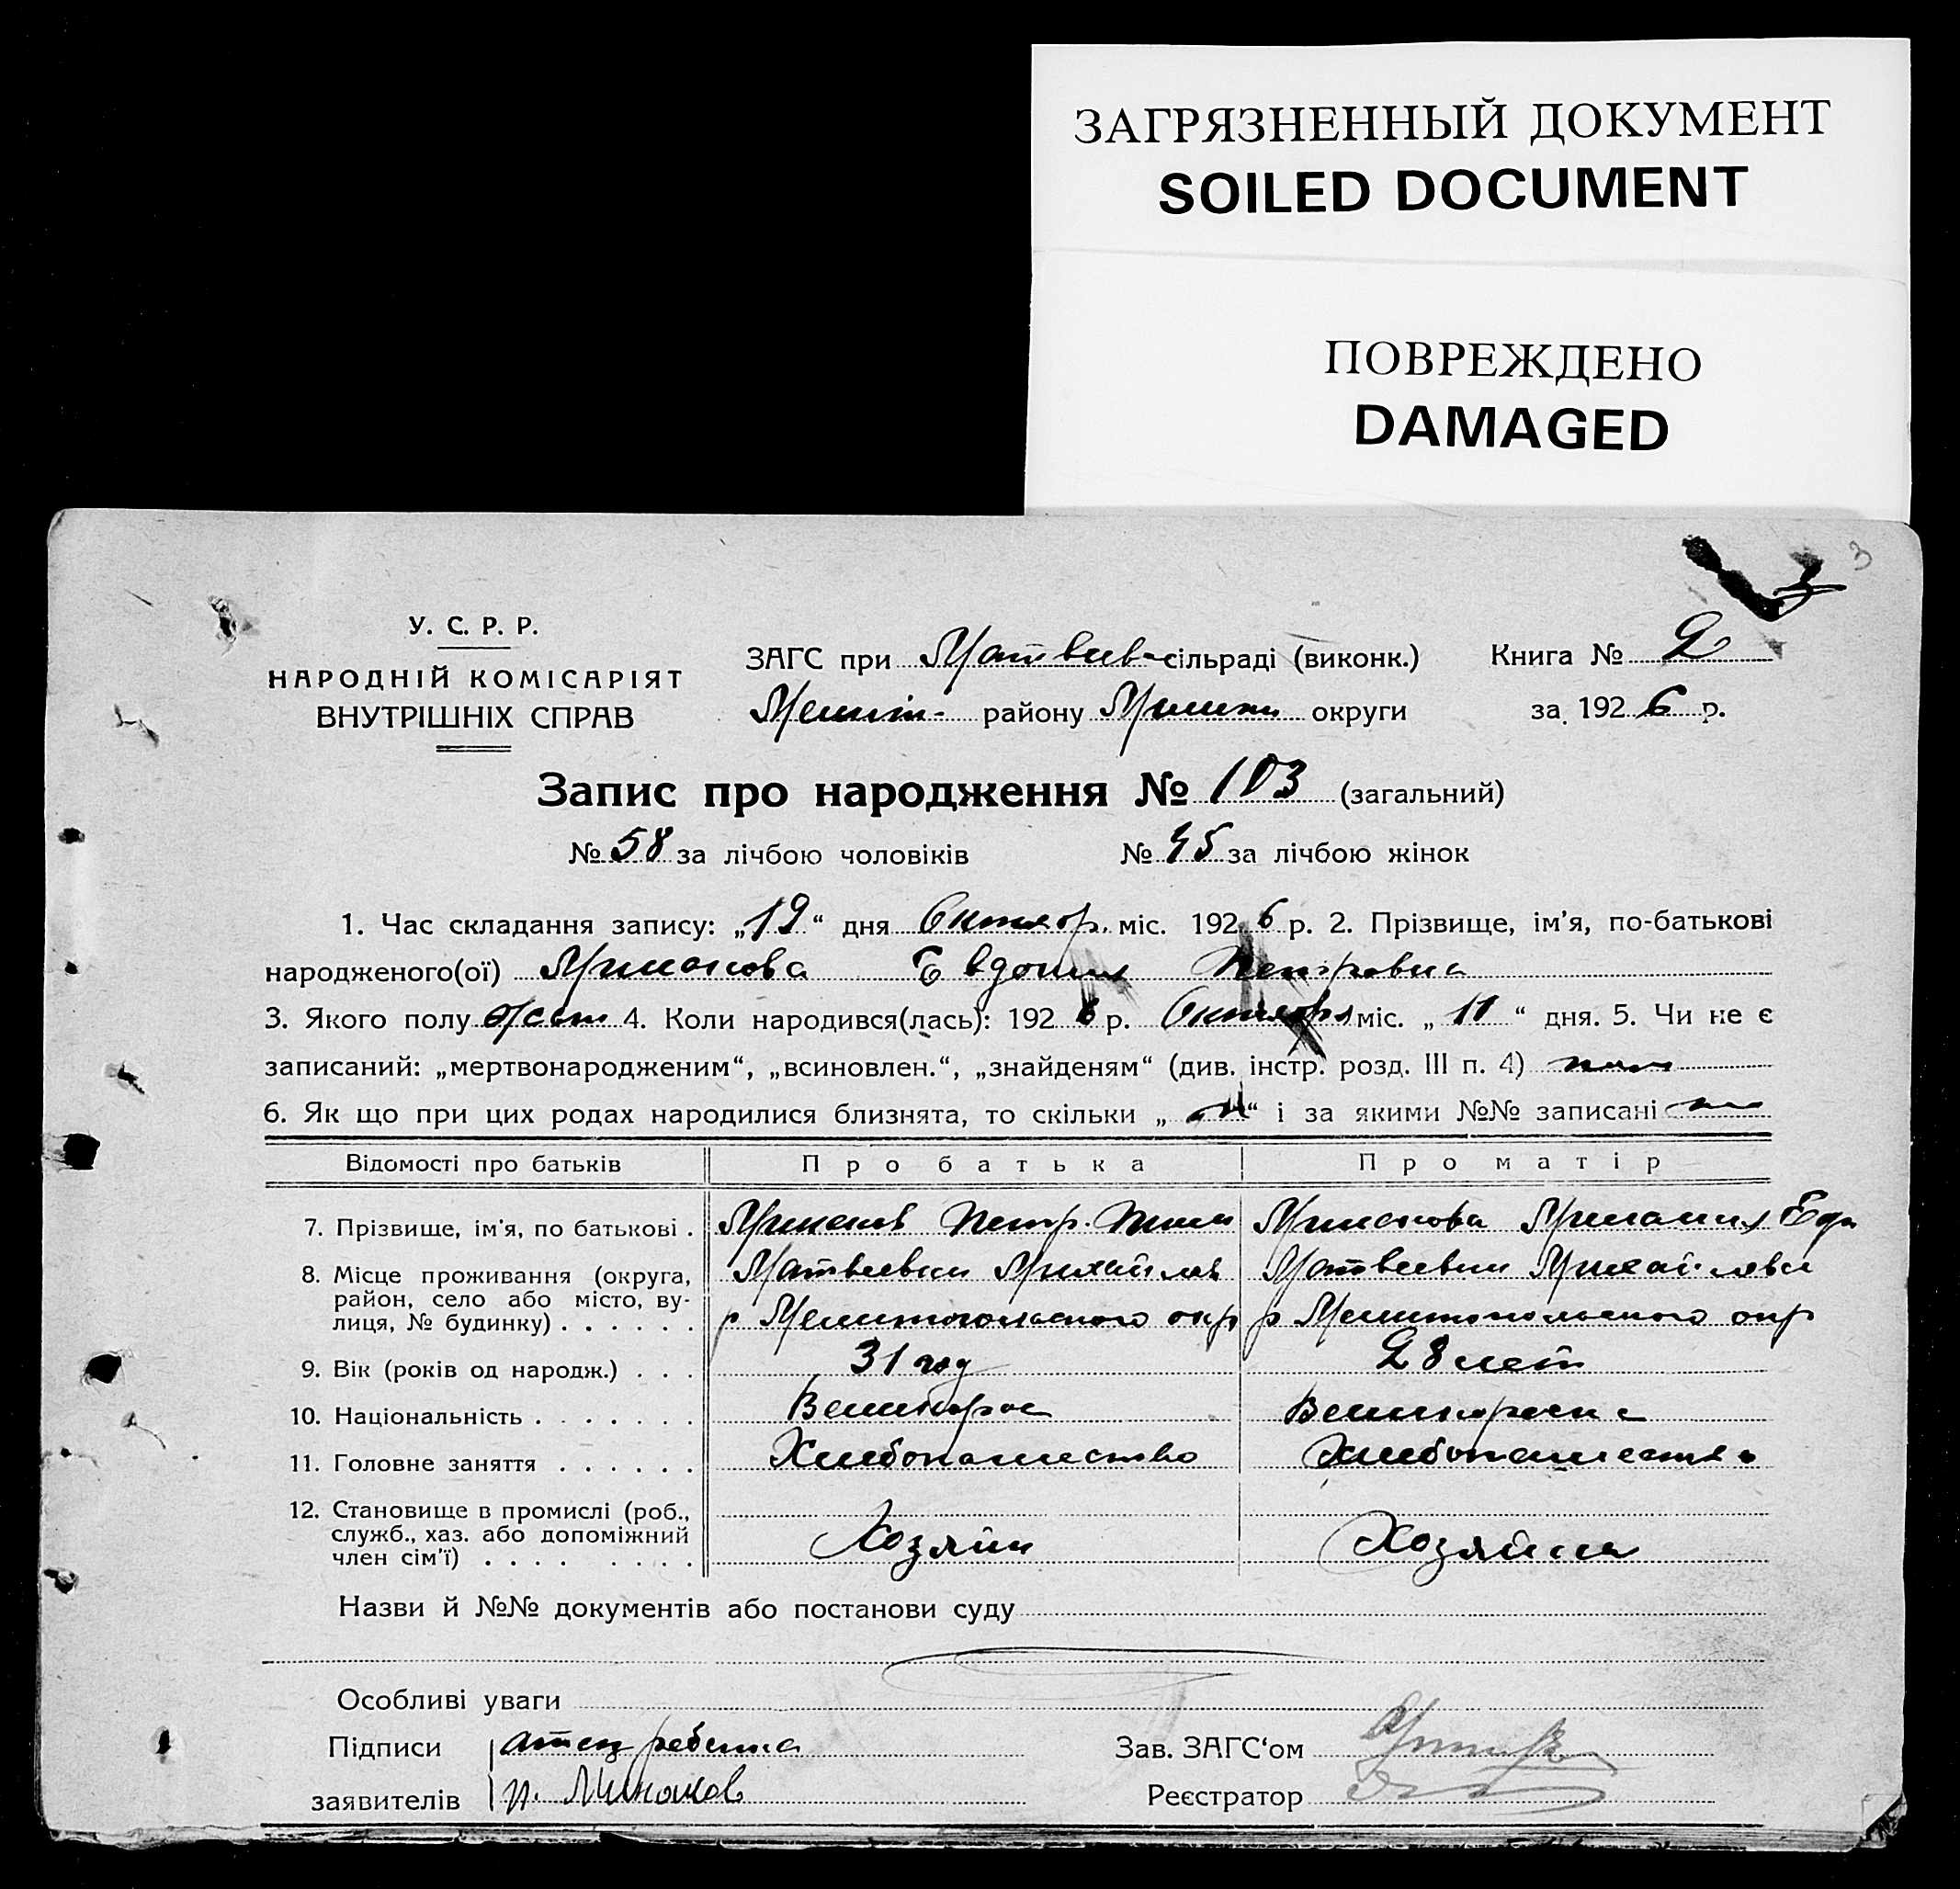 ЗАГРЯЗНЕННЫЙ ДОКУМЕНТ
SOILED DOCUMENT
ПОВРЕЖДЕНО
DAMAGED
3
У. С. Р. Р.
НАРОДНІЙ КОМІСАРІЯТ
ВНУТРІШНІХ СПРАВ
ЗАГС при Матвеев-сільраді (виконк.)
Мелит- району округи
Книга № 2
за 1926 р.
Запис про народження № 103 (загальний)
№ 58 за лічбою чоловіків № 45 за лічбою жінок
1. Час складання запису: „19“ дня Октябр. міс. 1926 р. 2. Прізвище, ім'я, по-батькові
народженого(ої) Минакова Евдокия Петровна
3. Якого полу жен 4. Коли народився(лась): 1926 р. Октября міс. „11“ дня. 5. Чи не є
записаний: „мертвонародженим“, „всиновлен.“, „знайденям“ (див. інстр. розд. III п. 4)
6. Як що при цих родах народилися близнята, то скільки „ “ і за якими №№ записані
Відомості про батьків Про батька Про матір
7. Прізвище, ім'я, по батькові . Минаков Петр. Минакова
8. Місце проживання (округа, район, село або місто, вулиця, № будинку) . . . . . . Матвеевки Михайлов Матвеевки Михайловск
р Мелитопольского окр р Мелитопольского окр
9. Вік (років од народж.) . . . 31 год 28 лет
10. Національність . . . . . . . Великорос
11. Головне заняття . . . . . . Хлебопашество Хлебопашество
12. Становище в промислі (роб., служб., хаз. або допоміжний член сім'ї) . . . . . . . . Хозяин Хозяйка
Назви й №№ документів або постанови суду
Особливі уваги
Підписи отец ребенка Зав. ЗАГС‘ом
заявителів П. Минаков Реєстратор